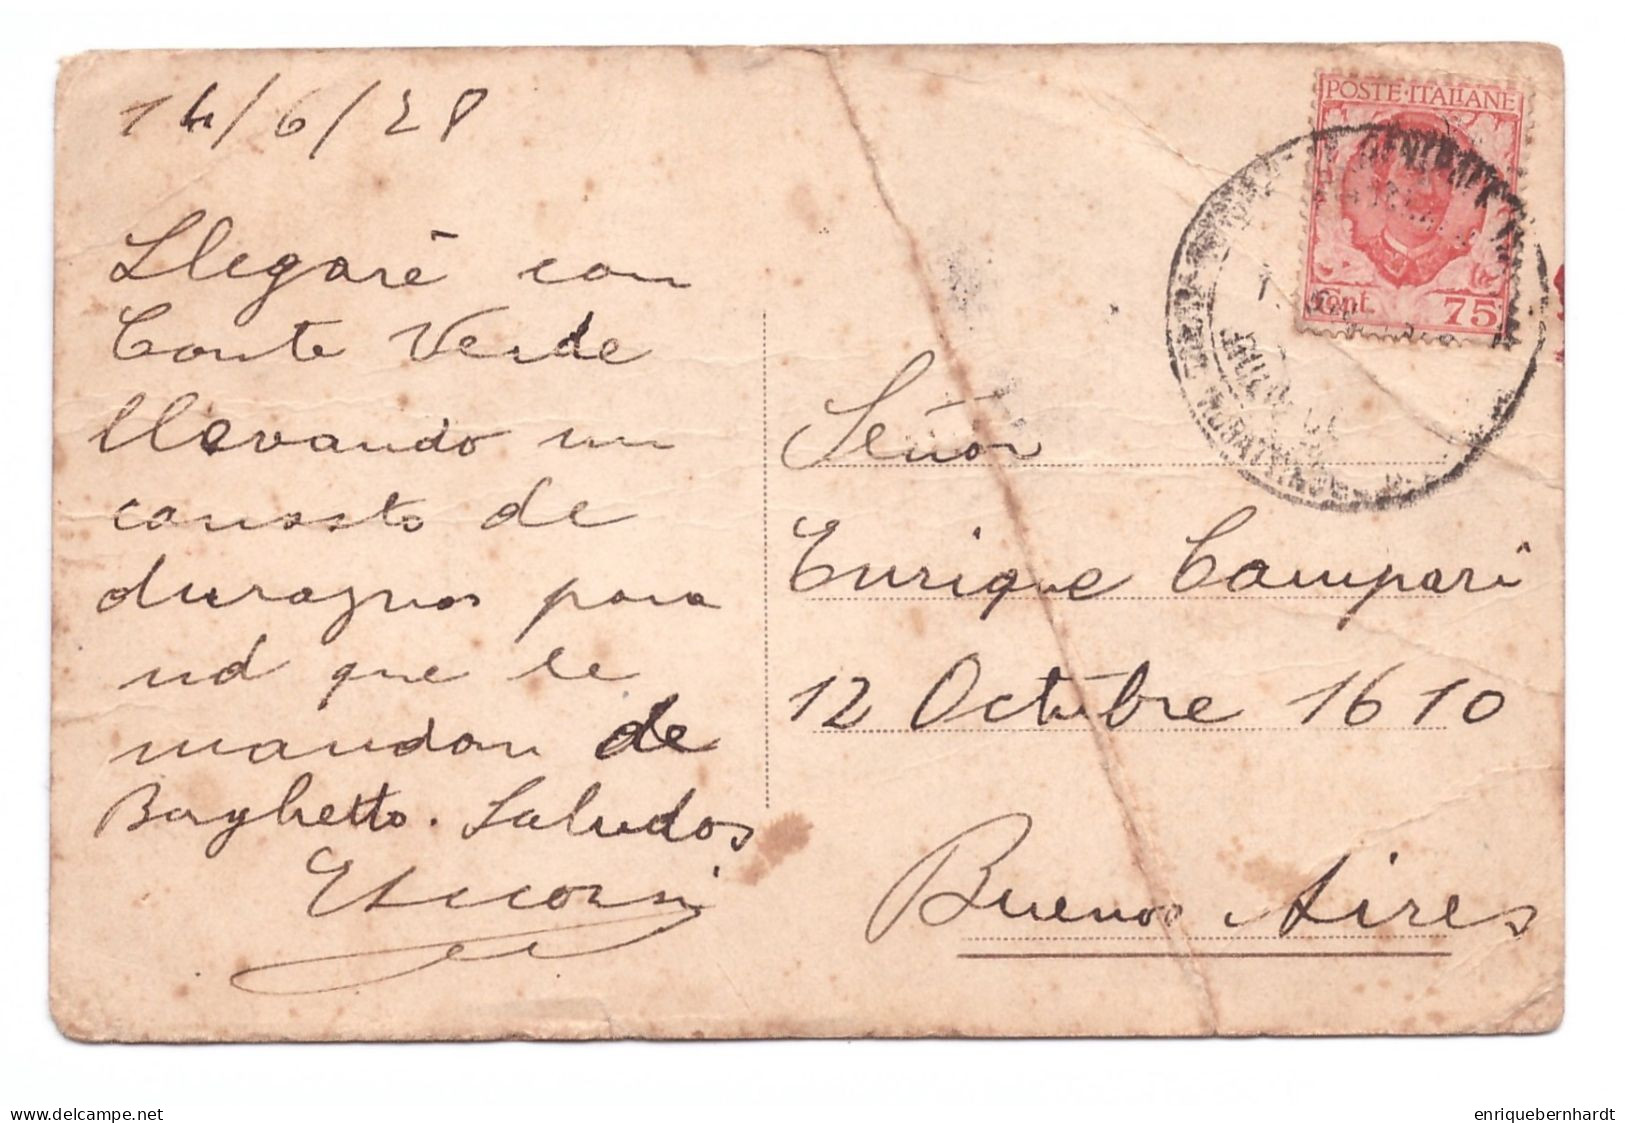 14/6/28
Llegaré con
Conte Verde
llevando un
canasto de
duraznos para
ud que le
mandan de
Borghetto. Saludos
Señor
Enrique Campari
12 Octubre 1610
Buenos Aires
POSTE·ITALIANE
Cent. 75
www.delcampe.net
enriquebernhardt